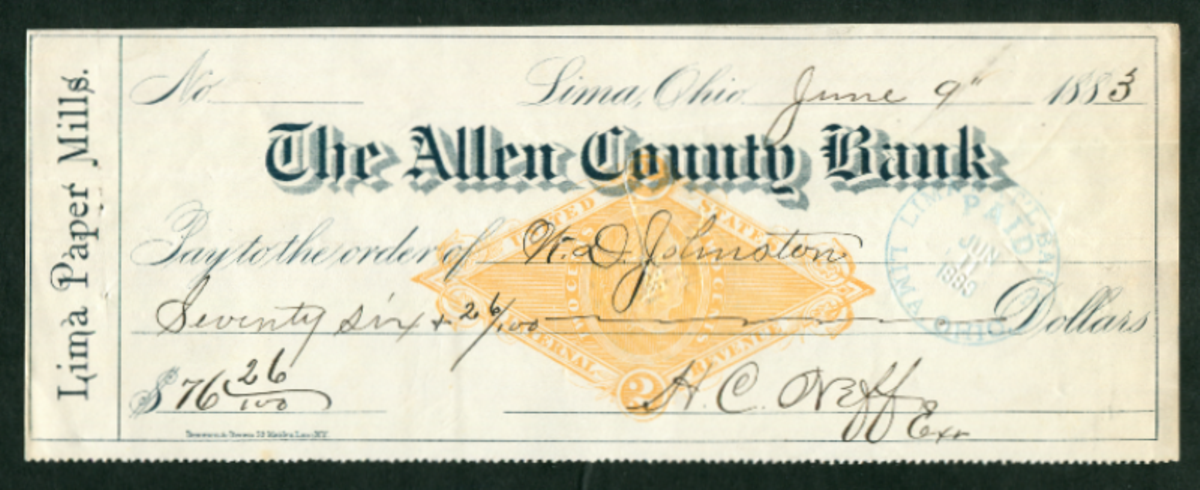 Lima Paper Mills.
No
Lima, Ohio June 9" 1883
The Allen County Bank
Pay to the order of W. D. Johnston
Seventy six + 26/100 Dollars
$ 76 26/100
H. C. Neff Exr
UNITED STATES
INTERNAL REVENUE
2
LIMA
PAID
JUN
11
1883
LIMA OHIO